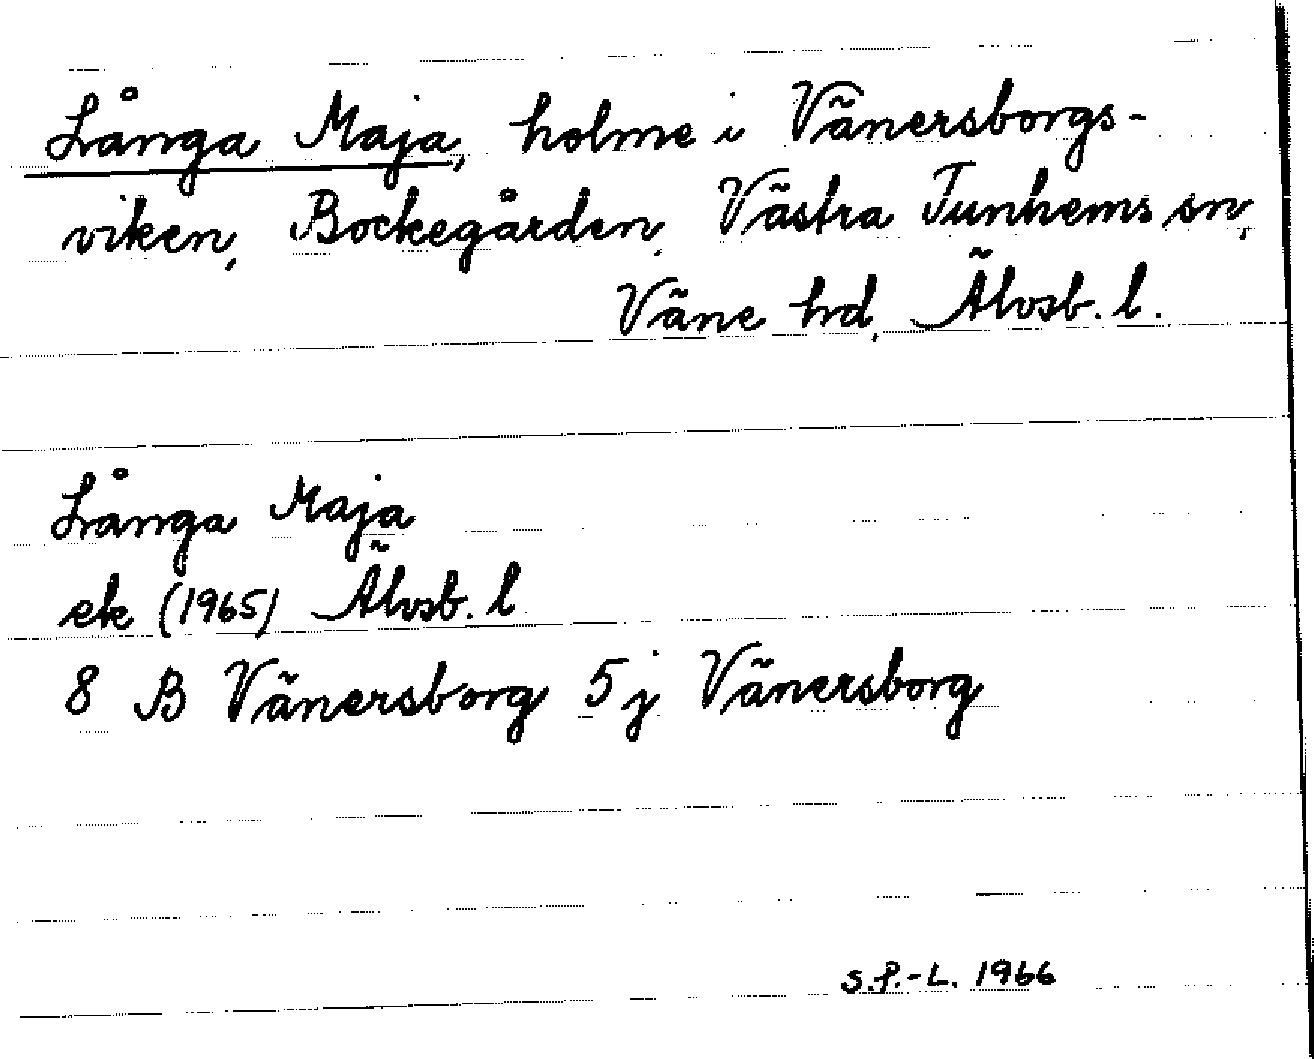 Långa Maja, holme i Vänersborgs-
viken, Bockegården, Västra Tunhems sn,
Väne hd, Älvsb. l.
Långa Maja
ek (1965) Älvsb. l
8 B Vänersborg 5 j Vänersborg
S.P.-L. 1966